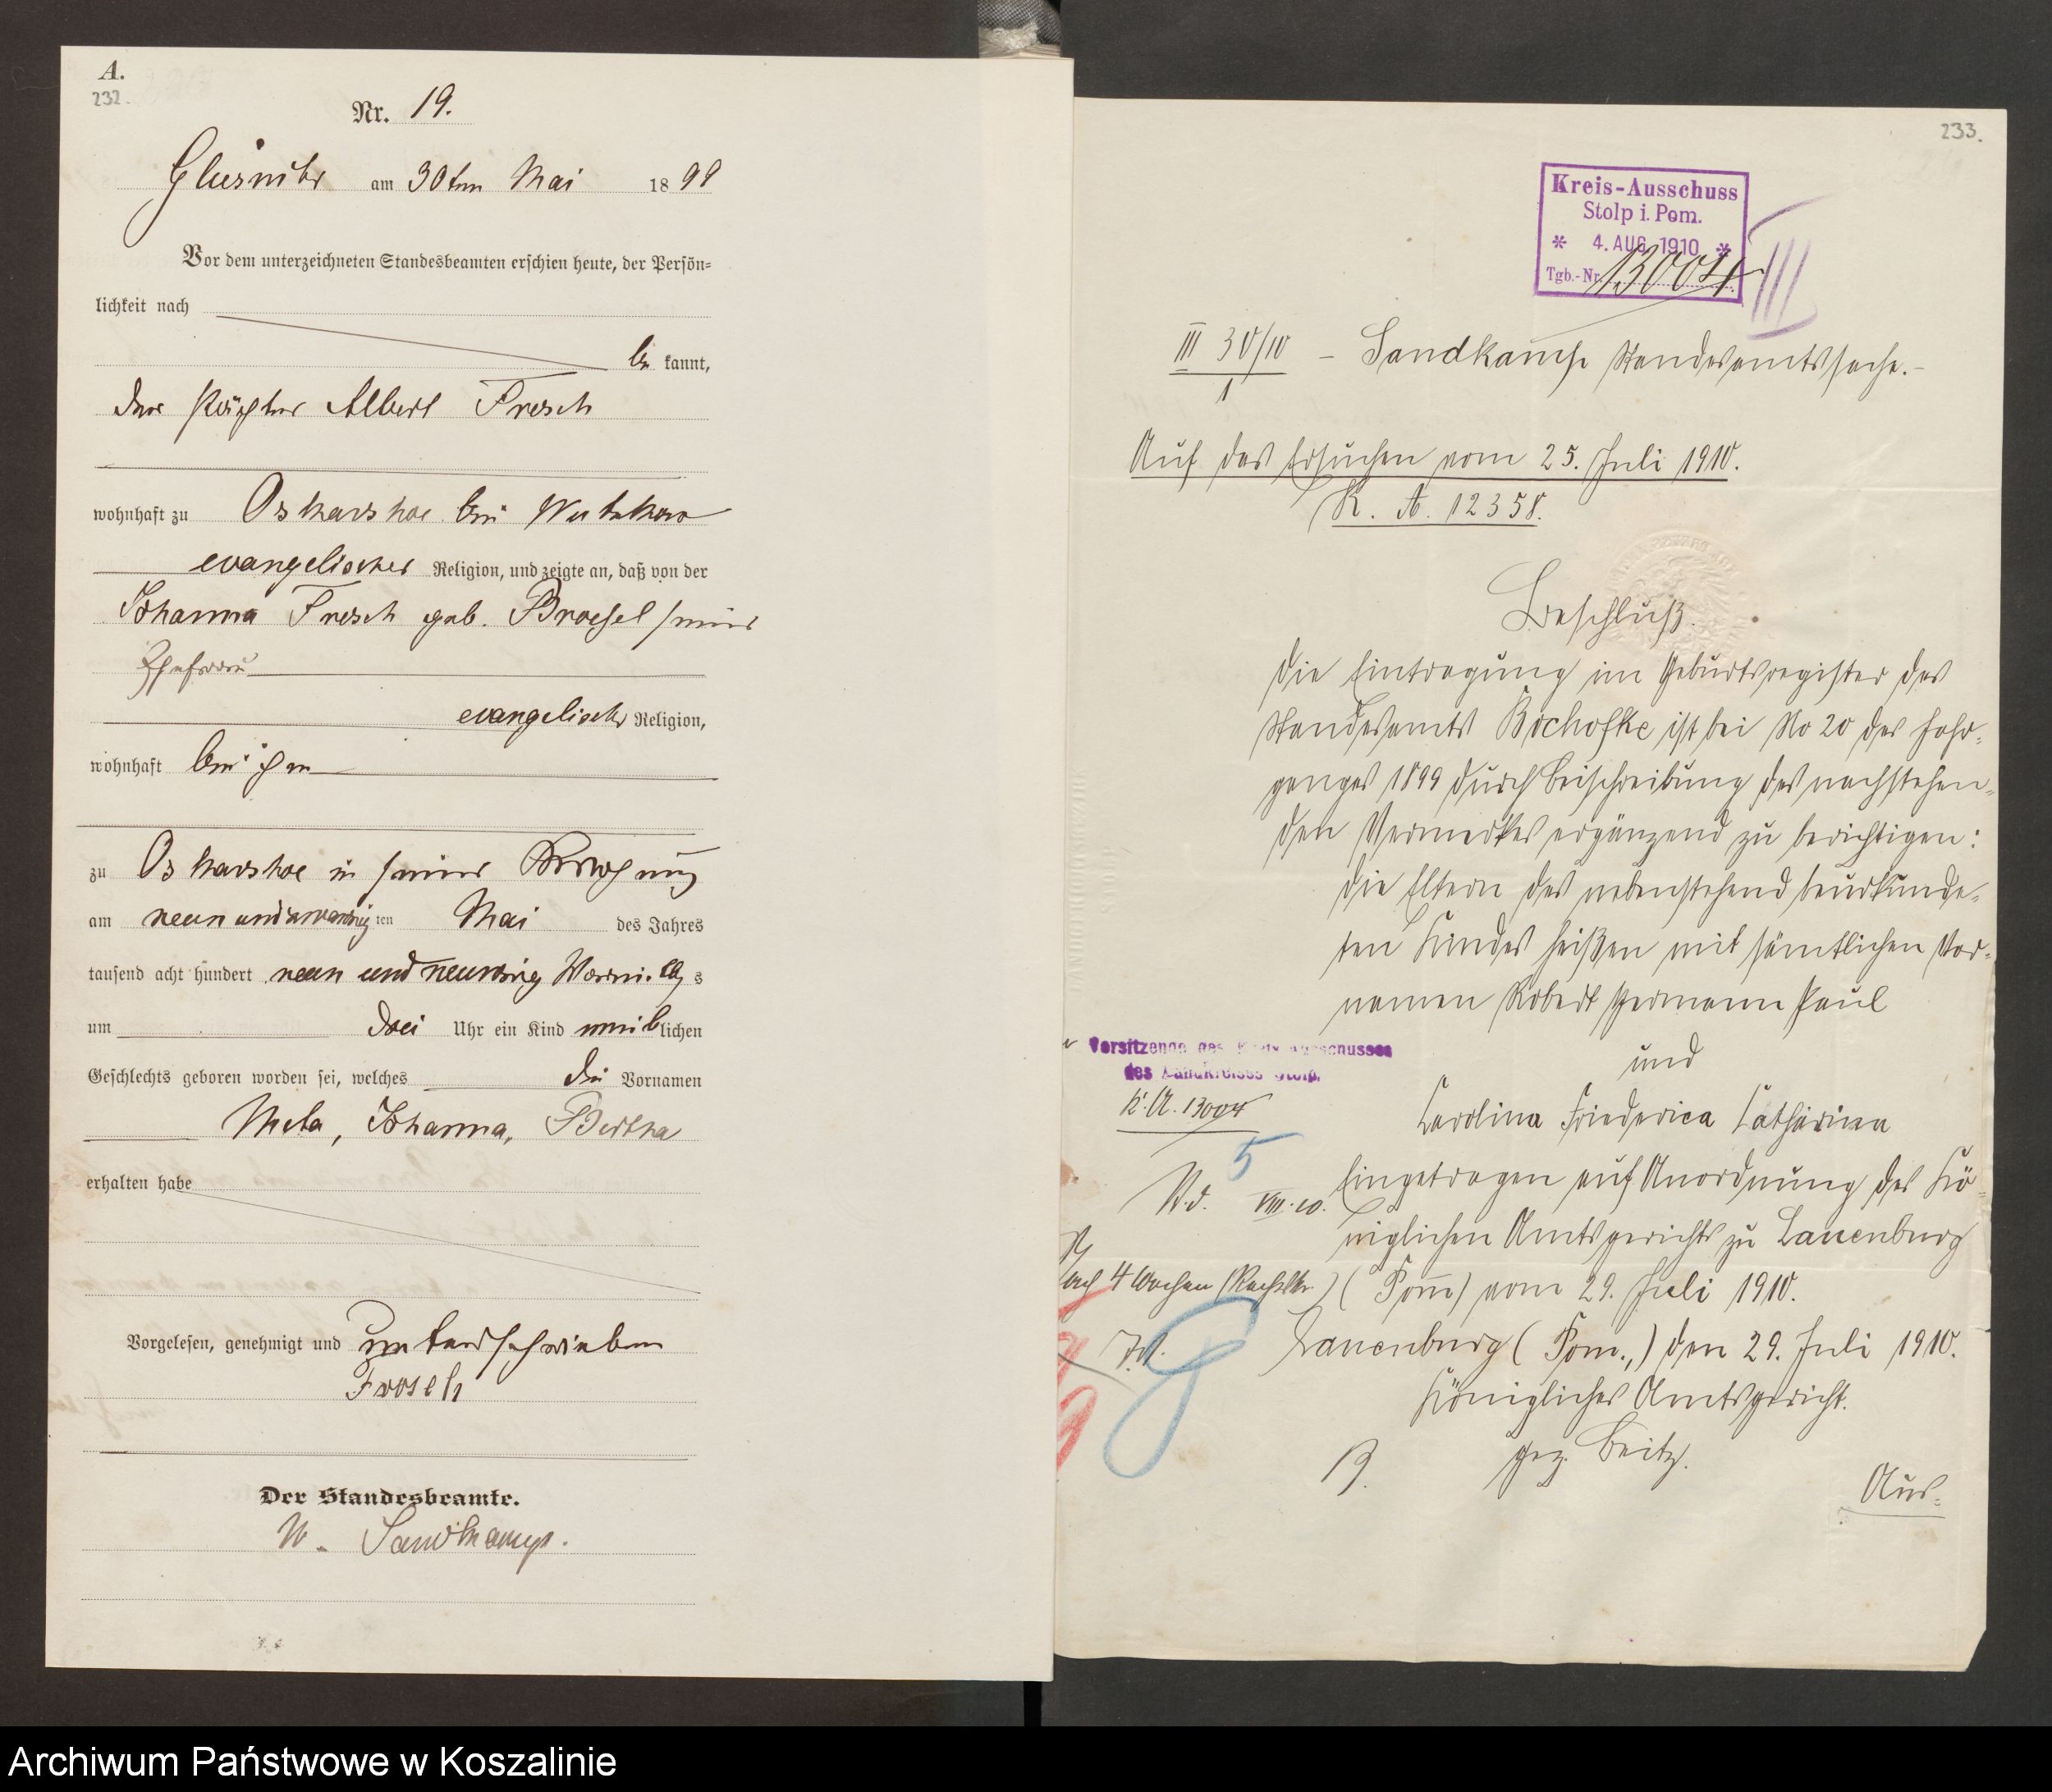 A.
232.
Nr. 19.
am 30ten Mai 1899
Vor dem unterzeichneten Standesbeamten erschien heute, der Persön-
lichkeit nach
be kannt,
der Pächter Albert Frosch
wohnhaft zu Oskarshoe bei Wutzkow
evangelischer Religion, und zeigte an, daß von der
Johanna Frosch geb. Broesel seiner
Ehefrau
evangelischer Religion,
wohnhaft bei ihm
zu Oskarshoe in seiner Wohnung
am neunundzwanzigten Mai des Jahres
tausend acht hundert neun und neunzig Vormittags
um drei Uhr ein Kind weiblichen
Geschlechts geboren worden sei, welches die Vornamen
Meta, Johanna, Bertha
erhalten habe
Vorgelesen, genehmigt und unterschrieben
Frosch
Der Standesbeamte.
W. Sandkamp.
233.
Kreis-Ausschuss
Stolp i. Pom.
* 4. AUG. 1910 *
Tgb.-Nr. 13004
III
III 30/10 – Sandkamp Standesamtssache.–
1
Auf das Ersuchen vom 25. Juli 1910.
K. A. 12358.
Beschluß.
Die Eintragung im Geburtsregister des
Standesamts Bochofke ist bei No 20 des Jahr-
ganges 1899 durch Beischreibung des nachstehen-
den Vermerkes ergänzend zu berichtigen:
Die Eltern des nebenstehend beurkunde-
ten Kindes heißen mit sämtlichen Vor-
namen Robert Hermann Paul
und
Carolina Friederica Catharina
Eingetragen auf Anordnung des Kö-
niglichen Amtsgerichts zu Lauenburg
(Pom) vom 29. Juli 1910.
Lauenburg (Pom.,) den 29. Juli 1910.
Königliches Amtsgericht.
gez. Beitz.
Aus-
Vorsitzende des Kreis-Ausschusses
des Landkreises Stolp.
K. A. 13004
5
VIII. 10.
nach 4 Wochen
Archiwum Państwowe w Koszalinie